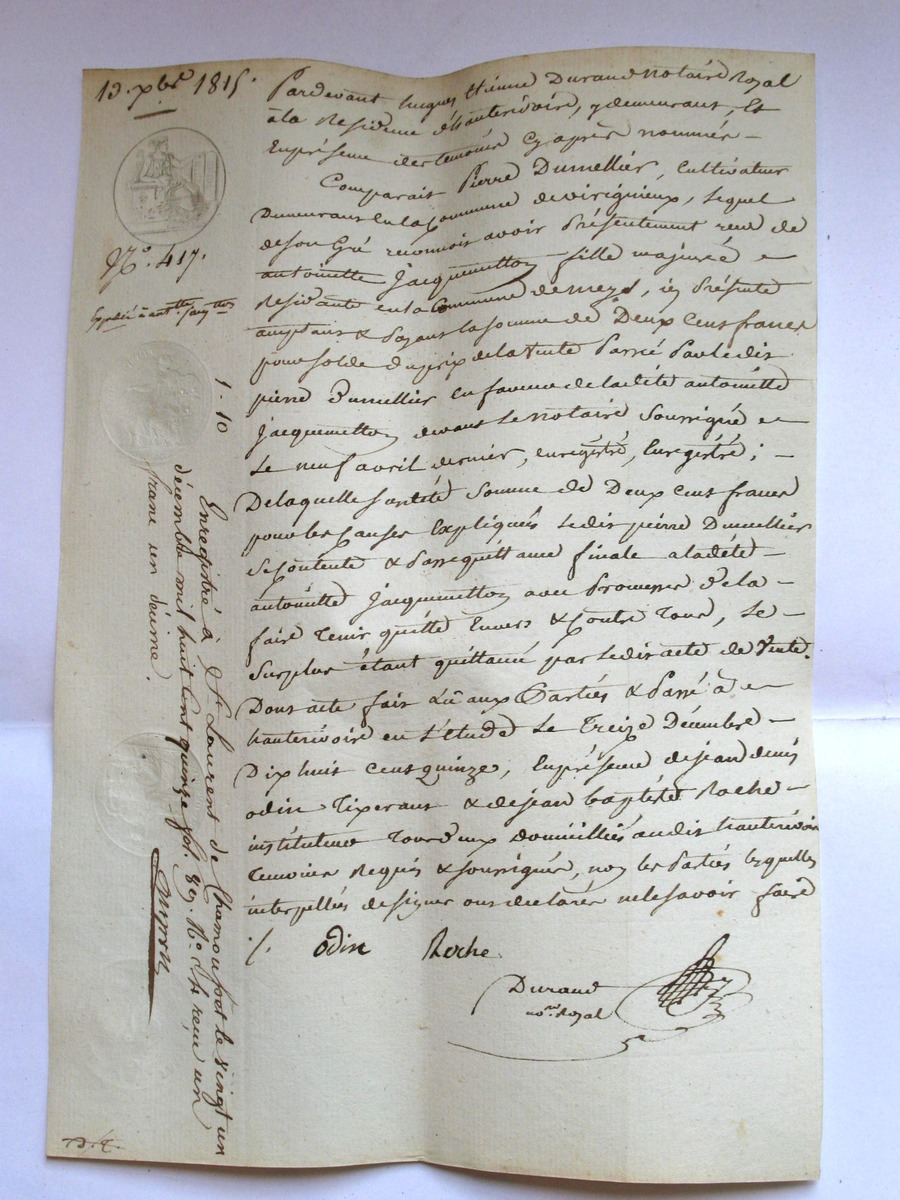 13. xbre 1815.
No. 417.
Expédié à antte. Jacqtton
Pardevant hugues Etienne Durand notaire Royal
à la Residence d'hauterivoire, y demeurant, Et
En présence des temoins cy après nommés
Comparait Pierre Dumellier, Cultivateur
Demeurant en la Commune de virignieux, lequel
de son Gré reconnois avoir Présentement reçu de
antoinette Jacquemetton fille majeure
Residante en la Commune de meys, icy Présente
acceptant & Payant la somme de Deux cens francs
pour solde du prix de la vente Passé Par le dit
pierre Dumellier en faveur de la dite antoinette
Jacquemetton devant Le notaire Soussigné
Le neuf avril dernier, enrégistré, Enregistré;
De laquelle susdite Somme de Deux cens francs
pour les Causes Expliqués le dit pierre Dumellier
Se Contente & Passe quittance finale a la dite
antoinette Jacquemetton avec Promesse de la
faire Tenir quitte Envers & Contre Tous, Le
Surplus étant quittancé par le dit acte de Vente.
Dont acte fait Lû aux Parties & Passé à
hauterivoire en L'étude Le Treize Décembre
Dix huit cens quinze, En présence de jean denis
odin Tixerant & de jean baptiste Roche
instituteur Tous deux Domiciliés au dit hauterivoire
Temoins Requis & soussignés, non les Parties lesquelles
interpellés de signer ont déclarés ne le savoir faire
odin Roche
Durand
nore. Royal
1 - 10
Enregistré à St. Laurent de Chamousset le vingt un
décembre mil huit Cent quinze fol. 89. reçu un
franc un décime.